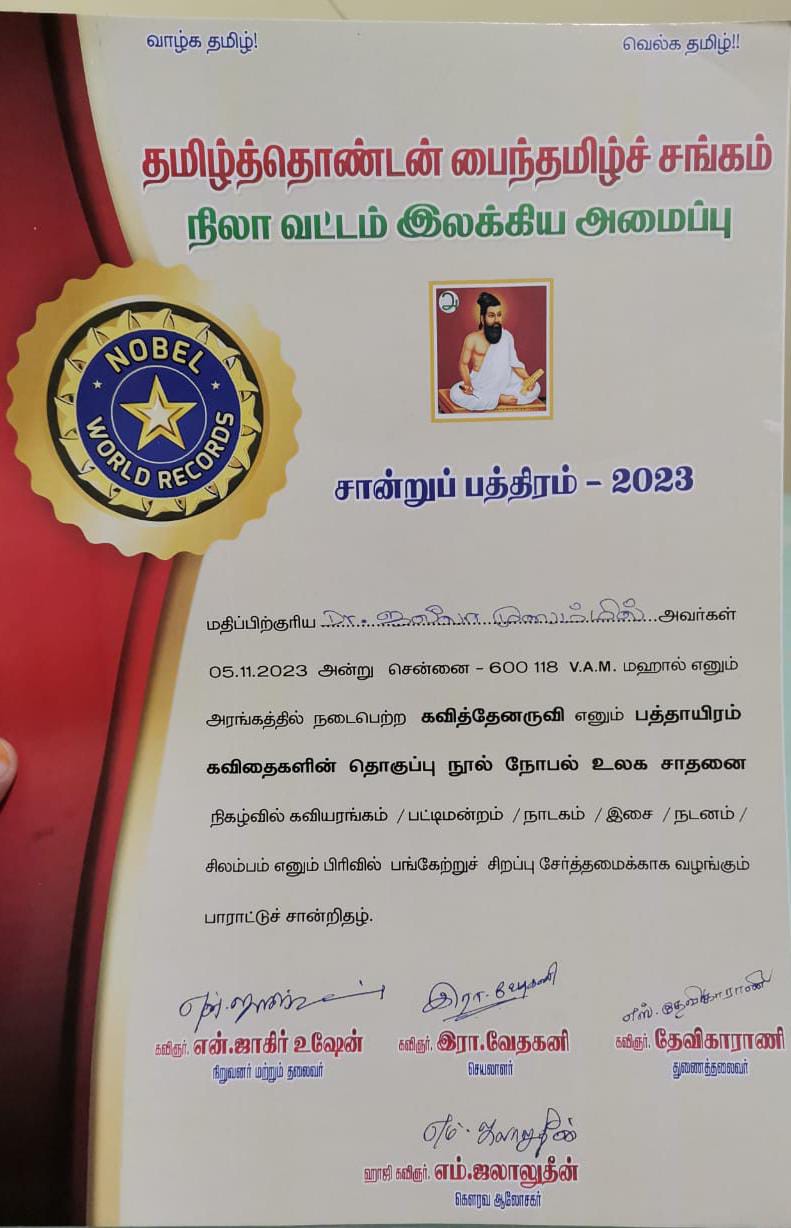 வாழ்க தமிழ்!
வெல்க தமிழ்!!
தமிழ்த்தொண்டன் பைந்தமிழ்ச் சங்கம்
நிலா வட்டம் இலக்கிய அமைப்பு
NOBEL
WORLD RECORDS
சான்றுப் பத்திரம் – 2023
மதிப்பிற்குரிய அவர்கள்
05.11.2023 அன்று சென்னை – 600 118 V.A.M. மஹால் எனும்
அரங்கத்தில் நடைபெற்ற கவித்தேனருவி எனும் பத்தாயிரம்
கவிதைகளின் தொகுப்பு நூல் நோபல் உலக சாதனை
நிகழ்வில் கவியரங்கம் / பட்டிமன்றம் / நாடகம் / இசை / நடனம் /
சிலம்பம் எனும் பிரிவில் பங்கேற்றுச் சிறப்பு சேர்த்தமைக்காக வழங்கும்
பாராட்டுச் சான்றிதழ்.
இரா. வேதகனி
எஸ். தேவிகாராணி
கவிஞர். என்.ஜாகிர் உஷேன்
கவிஞர். இரா.வேதகனி
கவிஞர். தேவிகாராணி
நிறுவனர் மற்றும் தலைவர்
செயலாளர்
துணைத்தலைவர்
எம். ஜலாலுதீன்
ஹாஜி கவிஞர். எம்.ஜலாலுதீன்
கௌரவ ஆலோசகர்